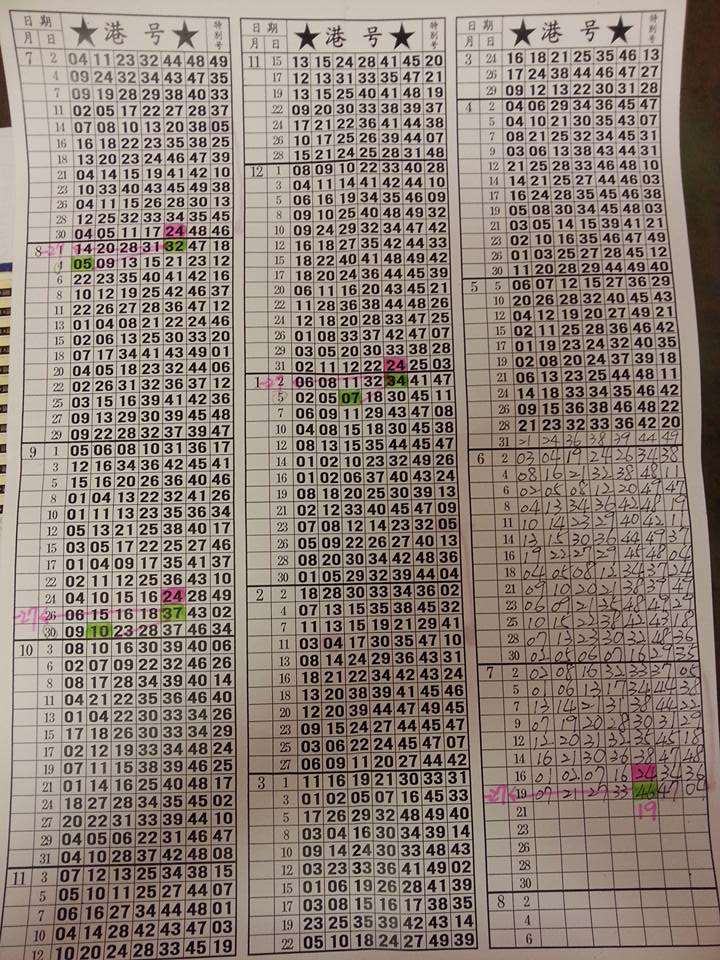 日期 ★港号★ 特别号
月 日
7 2 04 11 23 32 44 48 49
4 09 24 32 34 43 47 35
7 09 19 28 29 38 40 33
11 02 05 17 22 27 28 37
14 07 08 10 13 20 38 05
16 16 18 22 23 35 38 25
18 13 20 23 24 46 47 39
21 04 14 15 19 41 42 10
23 10 33 40 43 45 49 38
26 04 11 15 26 28 30 13
28 12 25 32 33 34 35 45
30 04 05 11 17 24 48 46
8 14 20 28 31 32 47 18
4 05 09 13 15 21 23 12
6 22 23 35 40 41 42 16
8 10 12 19 25 42 46 37
11 22 26 27 28 36 47 12
13 01 04 08 21 22 24 46
15 02 06 13 25 30 33 20
18 07 17 34 41 43 49 01
20 04 05 18 23 32 44 06
22 02 26 31 32 36 37 12
25 03 15 16 39 41 42 36
27 09 13 29 30 39 45 48
29 09 22 28 32 37 39 47
9 1 05 06 08 10 31 36 17
3 12 16 34 36 42 45 41
5 15 16 20 26 36 40 46
8 01 04 13 22 32 41 26
10 01 11 13 23 35 36 34
12 05 13 21 25 38 40 17
15 03 05 17 22 25 27 46
17 01 04 09 17 35 41 37
22 02 11 12 25 36 43 10
24 04 10 15 16 24 28 49
26 06 15 16 18 37 43 02
30 09 10 23 28 37 46 34
10 3 08 10 16 30 39 40 06
6 02 07 09 22 32 46 26
8 08 17 28 34 39 40 14
11 04 21 22 35 36 46 40
13 01 04 22 30 33 34 26
15 17 18 26 30 33 34 29
17 02 12 19 33 34 48 24
19 07 11 15 38 39 46 25
21 01 14 16 25 40 48 17
24 18 27 28 34 35 45 02
27 20 22 31 33 39 44 10
29 04 05 06 22 31 46 47
31 04 10 28 37 42 48 08
11 3 07 12 13 25 34 38 15
5 05 10 11 25 27 44 07
7 06 16 27 34 44 48 01
10 04 14 28 42 43 47 03
12 10 20 24 28 33 45 19
日期 ★港号★ 特别号
月 日
11 15 13 15 24 28 41 45 20
17 12 13 31 33 35 47 21
19 13 15 25 40 41 48 19
22 09 20 30 33 38 39 37
24 17 21 22 36 41 44 38
26 10 17 25 26 39 44 07
28 15 21 24 25 28 31 48
12 1 08 09 10 22 33 40 28
3 04 11 14 41 42 44 10
5 06 16 19 34 35 46 09
8 09 10 25 40 48 49 32
10 09 24 29 32 34 47 42
12 16 18 27 35 42 44 33
15 18 22 40 41 48 49 42
17 18 20 24 36 44 45 39
20 06 11 16 20 43 45 21
22 11 28 36 38 44 48 26
24 12 18 20 28 33 47 25
26 01 08 33 37 42 47 07
29 03 05 20 30 33 38 28
31 02 11 12 22 24 25 03
1 2 06 08 11 32 34 41 47
5 02 05 07 18 30 45 11
7 06 09 11 29 43 47 08
10 04 08 15 18 30 45 38
12 08 13 15 35 44 45 47
14 01 02 10 23 32 49 26
16 01 02 06 37 40 43 24
19 08 18 20 25 30 39 13
21 02 12 33 40 45 47 09
23 07 08 12 14 23 32 05
26 05 09 22 26 27 40 13
28 08 20 30 34 42 48 36
30 01 05 29 32 39 44 04
2 2 18 28 30 33 34 36 02
4 07 13 15 35 38 45 32
7 11 13 15 19 21 29 41
11 03 04 17 30 35 47 10
13 08 14 24 29 36 43 31
16 18 21 22 34 42 43 24
18 13 20 38 39 41 45 46
20 12 20 39 44 47 49 45
23 09 15 24 27 44 45 47
25 03 06 22 24 45 47 07
27 06 09 11 20 27 44 42
3 1 11 16 19 21 30 33 31
3 01 02 05 07 16 45 33
5 17 26 29 32 48 49 40
8 03 04 16 30 34 39 14
10 09 14 24 30 43 44 49
12 03 23 33 36 41 49 02
15 01 06 19 26 28 41 39
17 03 08 15 16 17 38 35
19 23 25 35 39 42 43 14
22 05 10 18 24 27 49 39
日期 ★港号★ 特别号
月 日
3 24 16 18 21 25 35 46 13
26 17 24 38 44 46 47 27
29 09 12 13 22 30 31 28
4 2 04 06 29 34 36 45 47
5 04 10 21 30 35 43 07
7 08 21 25 32 34 45 31
9 03 06 13 38 39 44 33
12 21 25 28 33 46 48 10
14 14 21 25 27 44 46 03
16 17 24 28 35 45 46 38
19 05 08 30 34 45 48 03
21 03 05 14 15 39 41 21
23 02 10 16 35 46 47 49
26 01 03 25 27 28 45 12
30 11 20 28 29 44 49 40
5 5 06 07 12 15 27 36 29
10 20 26 28 32 40 45 43
12 04 12 19 20 27 49 21
15 02 11 25 28 36 46 42
17 01 19 23 24 32 40 35
19 02 08 20 24 37 39 18
21 06 13 23 25 44 48 11
24 14 18 33 34 35 46 42
26 09 15 36 38 46 48 22
28 21 23 32 33 36 42 20
31 21 24 36 38 39 44 49
6 2 03 04 19 24 26 34 38
4 08 16 21 32 38 48 11
6 02 05 08 12 20 49 47
8 04 13 34 36 42 48 19
11 10 14 23 29 40 42 11
14 13 15 30 36 44 49 37
16 19 22 27 29 45 48 04
18 04 05 08 12 34 37 24
21 09 10 20 21 38 39 47
23 06 09 21 35 48 49 29
25 10 15 22 38 42 43 18
28 07 13 23 30 32 48 36
30 02 05 06 07 16 29 35
7 2 02 08 16 32 33 37 05
5 01 06 13 17 34 44 38
7 13 14 21 31 38 44 22
9 07 19 20 28 30 31 29
12 12 20 31 32 35 45 18
14 16 21 30 36 38 47 48
16 01 02 07 16 24 34 36
19 07 21 27 33 46 47
21 19
23
26
28
30
8 2
4
6